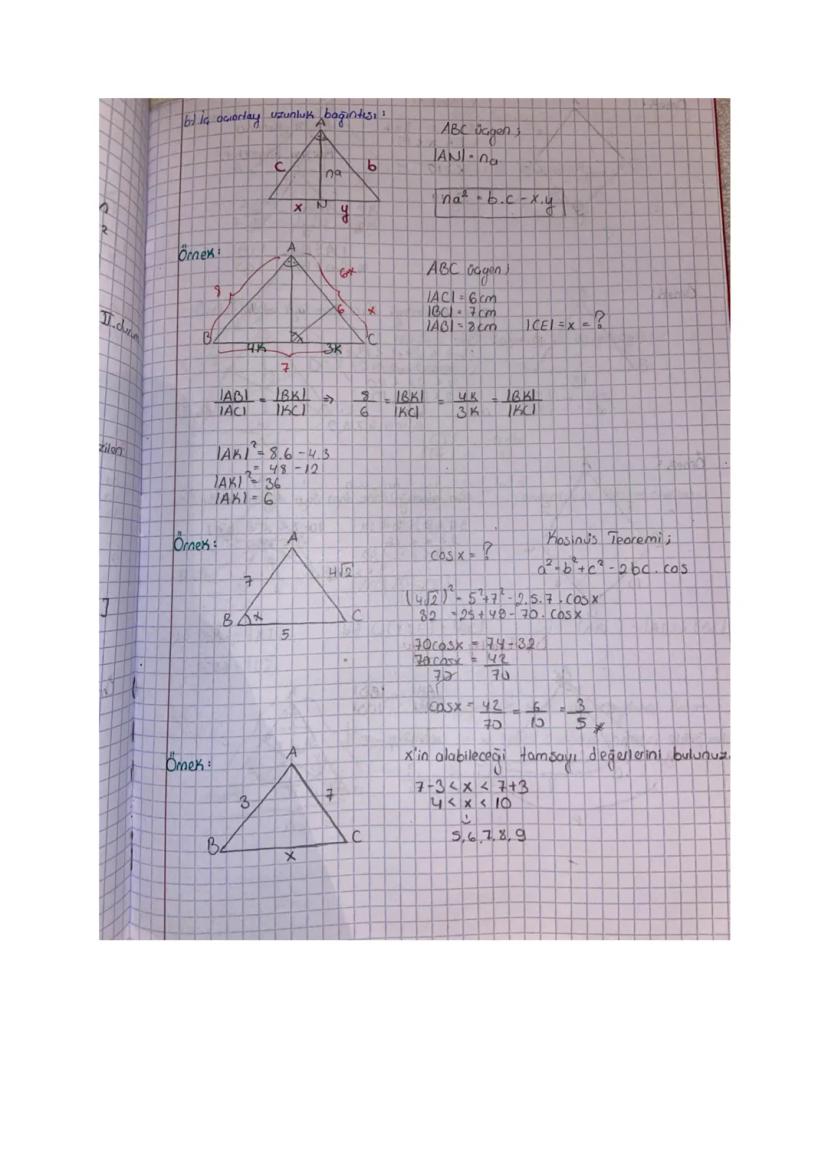 b) İç açıortay uzunluk bağıntısı:
A
c
na
b
x
N
y
ABC üçgen;
|AN| = na
na² = b.c - x.y
Örnek:
A
8
6-x
6
x
B
4K
3K
C
7
ABC üçgen;
|AC| = 6cm
|BC| = 7cm
|AB| = 8cm |CE| = x = ?
|AB| / |AC| = |BK| / |KC| ⇒ 8/6 = |BK| / |KC| = 4K/3K = |BK| / |KC|
|AK|² = 8.6 - 4.3
= 48 - 12
|AK|² = 36
|AK| = 6
Örnek:
A
7
4√2
B
x
C
5
cosx = ?
Kosinüs Teoremi;
a² = b² + c² - 2bc.cos
(4√2)² = 5² + 7² - 2.5.7.cosx
32 = 25 + 49 - 70.cosx
70cosx = 74 - 32
70cosx / 70 = 42 / 70
cosx = 42/70 = 6/10 = 3/5
Örnek:
A
3
7
B
C
x
x'in alabileceği tamsayı değerlerini bulunuz.
7-3 < x < 7+3
4 < x < 10
5, 6, 7, 8, 9
II. durum